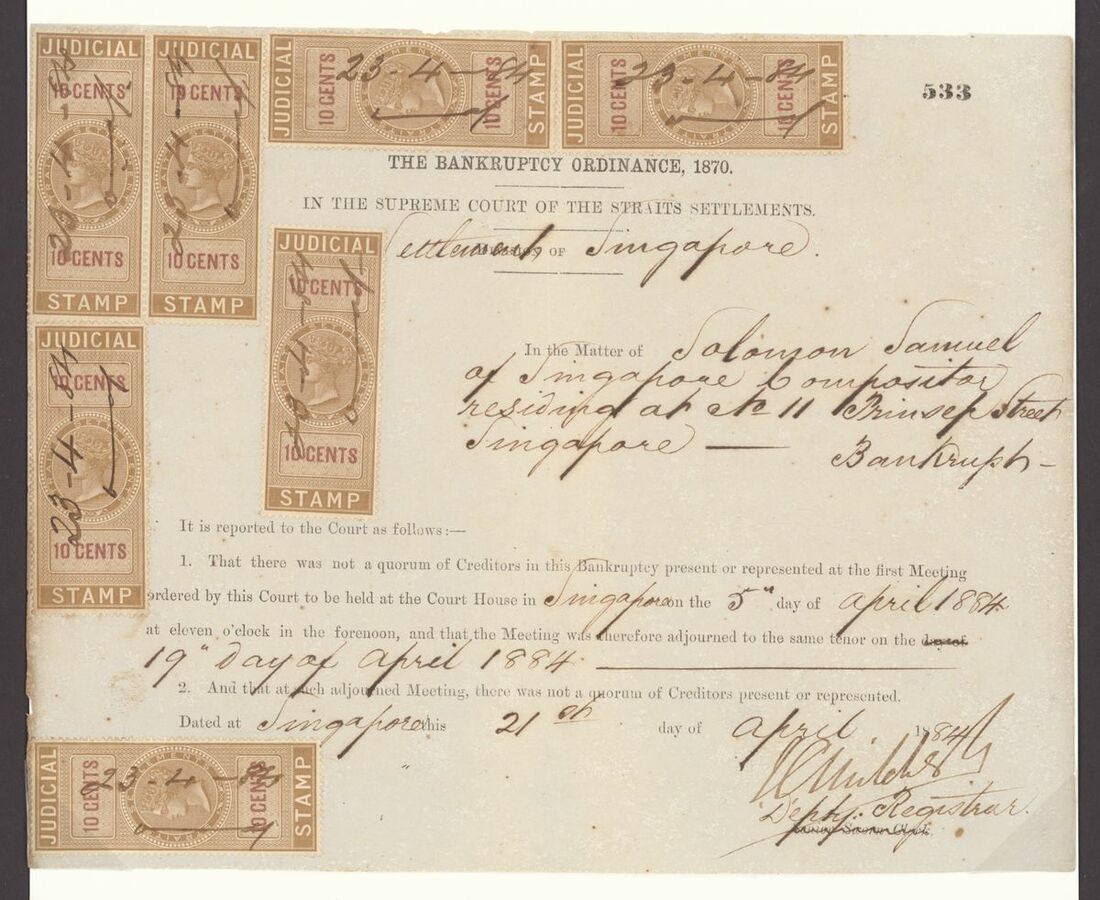 JUDICIAL
10 CENTS
23-4-84
STRAITS SETTLEMENTS
10 CENTS
STAMP
JUDICIAL
10 CENTS
23-4-84
STRAITS SETTLEMENTS
10 CENTS
STAMP
JUDICIAL
10 CENTS
23-4-84
STRAITS SETTLEMENTS
10 CENTS
STAMP
JUDICIAL
10 CENTS
23-4-84
STRAITS SETTLEMENTS
10 CENTS
STAMP
533
THE BANKRUPTCY ORDINANCE, 1870.
IN THE SUPREME COURT OF THE STRAITS SETTLEMENTS.
Settlement OF Singapore.
JUDICIAL
10 CENTS
23-4-84
STRAITS SETTLEMENTS
10 CENTS
STAMP
In the Matter of Solomon Samuel
of Singapore Compositor
residing at No 11 Prinsep Street
Singapore — Bankrupt -
JUDICIAL
10 CENTS
23-4-84
STRAITS SETTLEMENTS
10 CENTS
STAMP
It is reported to the Court as follows:—
1. That there was not a quorum of Creditors in this Bankruptcy present or represented at the first Meeting
ordered by this Court to be held at the Court House in Singapore on the 5th day of April 1884
at eleven o'clock in the forenoon, and that the Meeting was therefore adjourned to the same tenor on the day of
19" day of April 1884
2. And that at such adjourned Meeting, there was not a quorum of Creditors present or represented.
Dated at Singapore this 21st day of April 1884
Depty. Registrar.
JUDICIAL
10 CENTS
23-4-84
STRAITS SETTLEMENTS
10 CENTS
STAMP